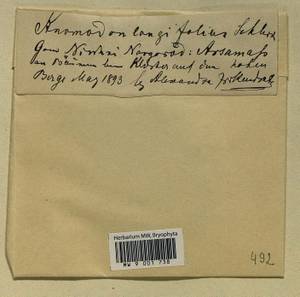 Anomodon longifolius Schleich
Gouv Nischni Nowgorod: Arsamass
an Bäumen beim Kloster auf dem hohen
Berge May 1893 lg Alexandra
Herbarium MW, Bryophyta
MW 9 001 738
492